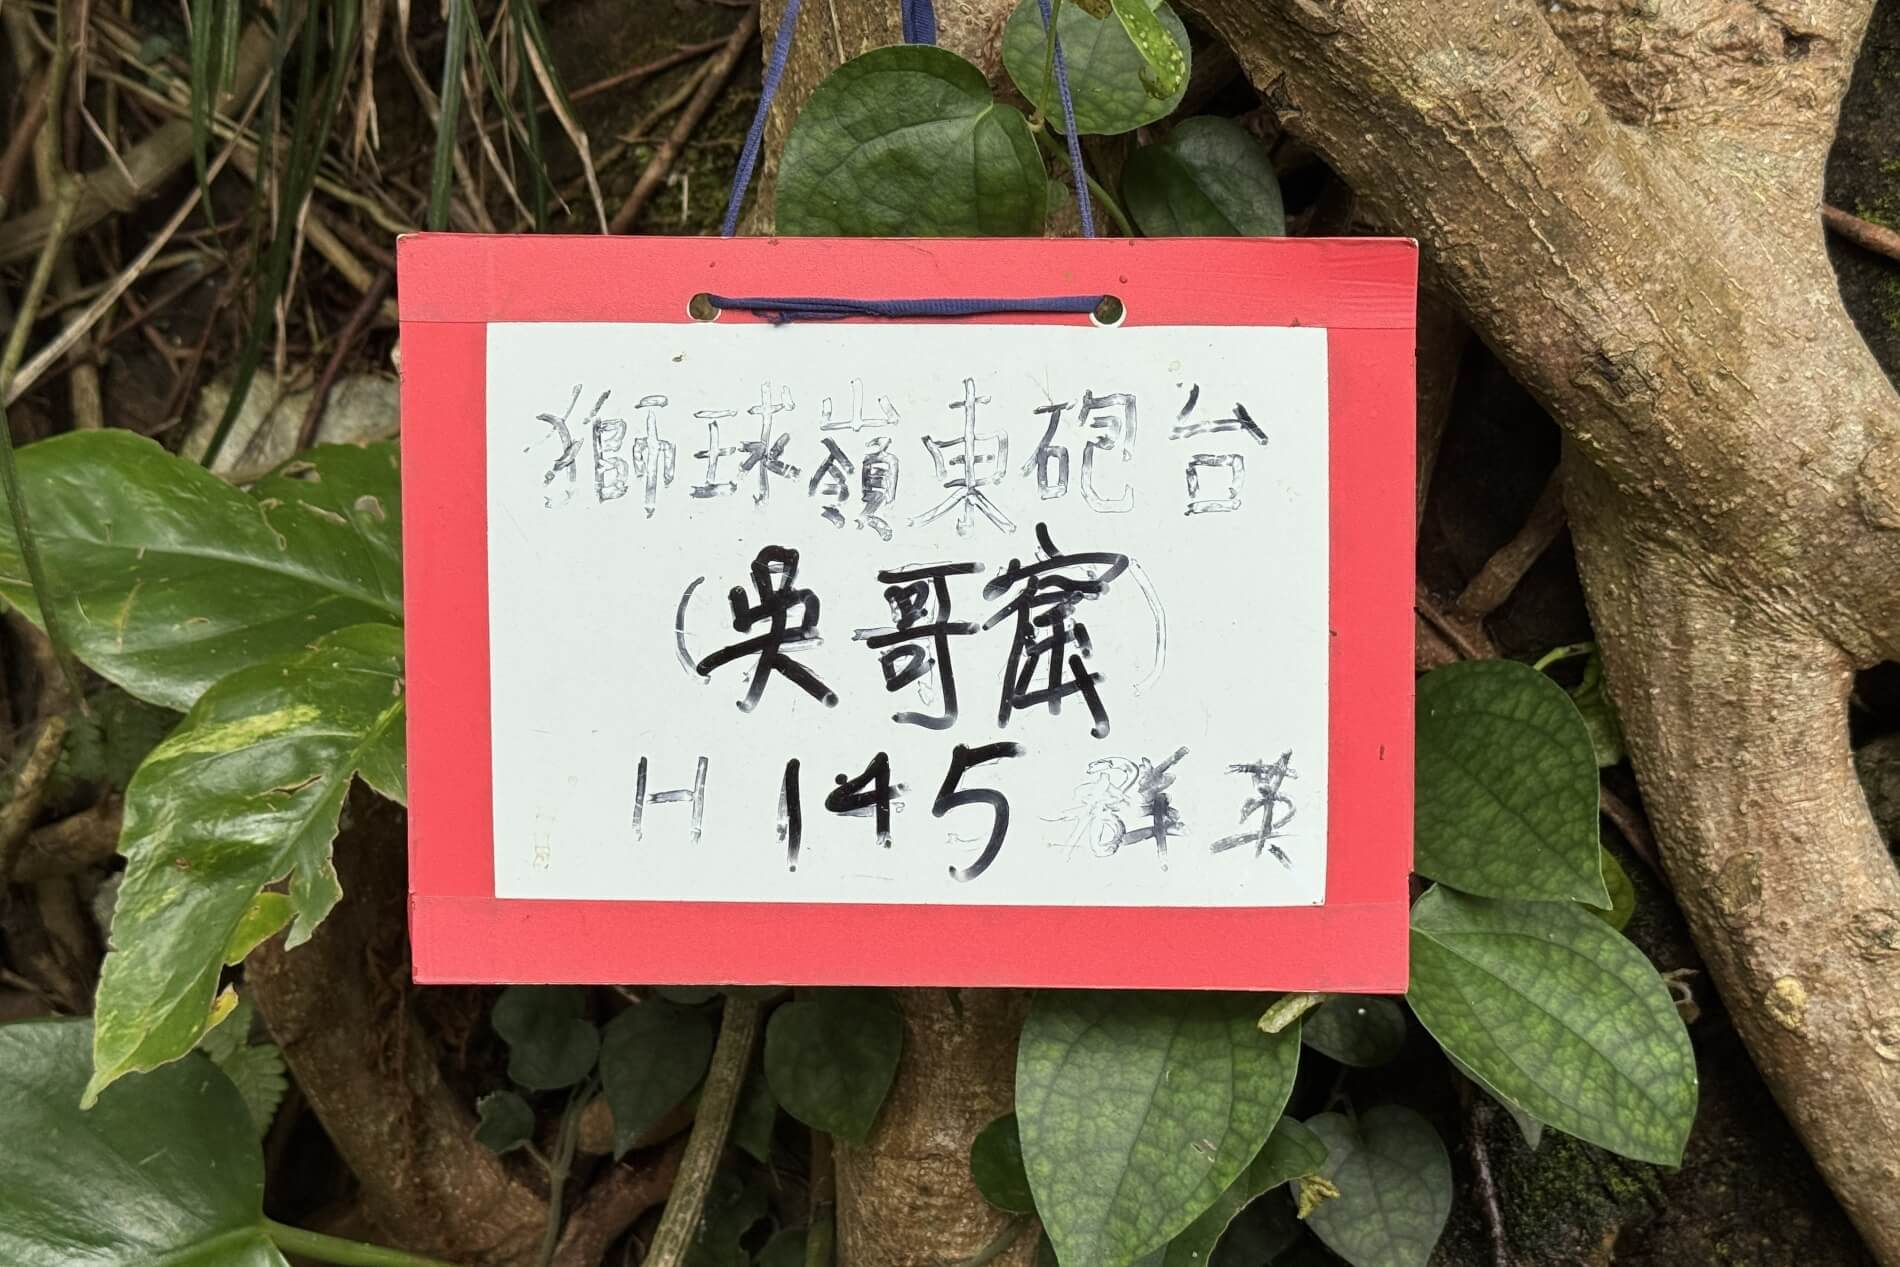 獅球嶺東砲台
(吳哥窟)
H 145 群英